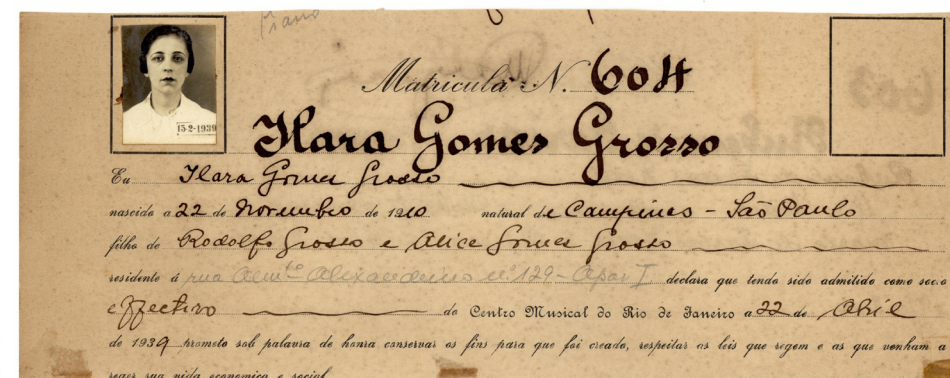 Piano
15-2-1939
Matricula N. 604
Ilara Gomes Grosso
Eu Ilara Gomes Grosso
nascido a 22 de Novembro de 1910 natural de Campinas - São Paulo
filho de Rodolfo Grosso e Alice Gomes Grosso
residente á rua Almte Alexandrino nº 129 - Apar I declara que tendo sido admitido como socio
effectivo do Centro Musical do Rio de Janeiro a 22 de Abril
de 1939 prometo sob palavra de honra conservar os fins para que foi creado, respeitar as leis que regem e as que venham a
reger sua vida economica e social